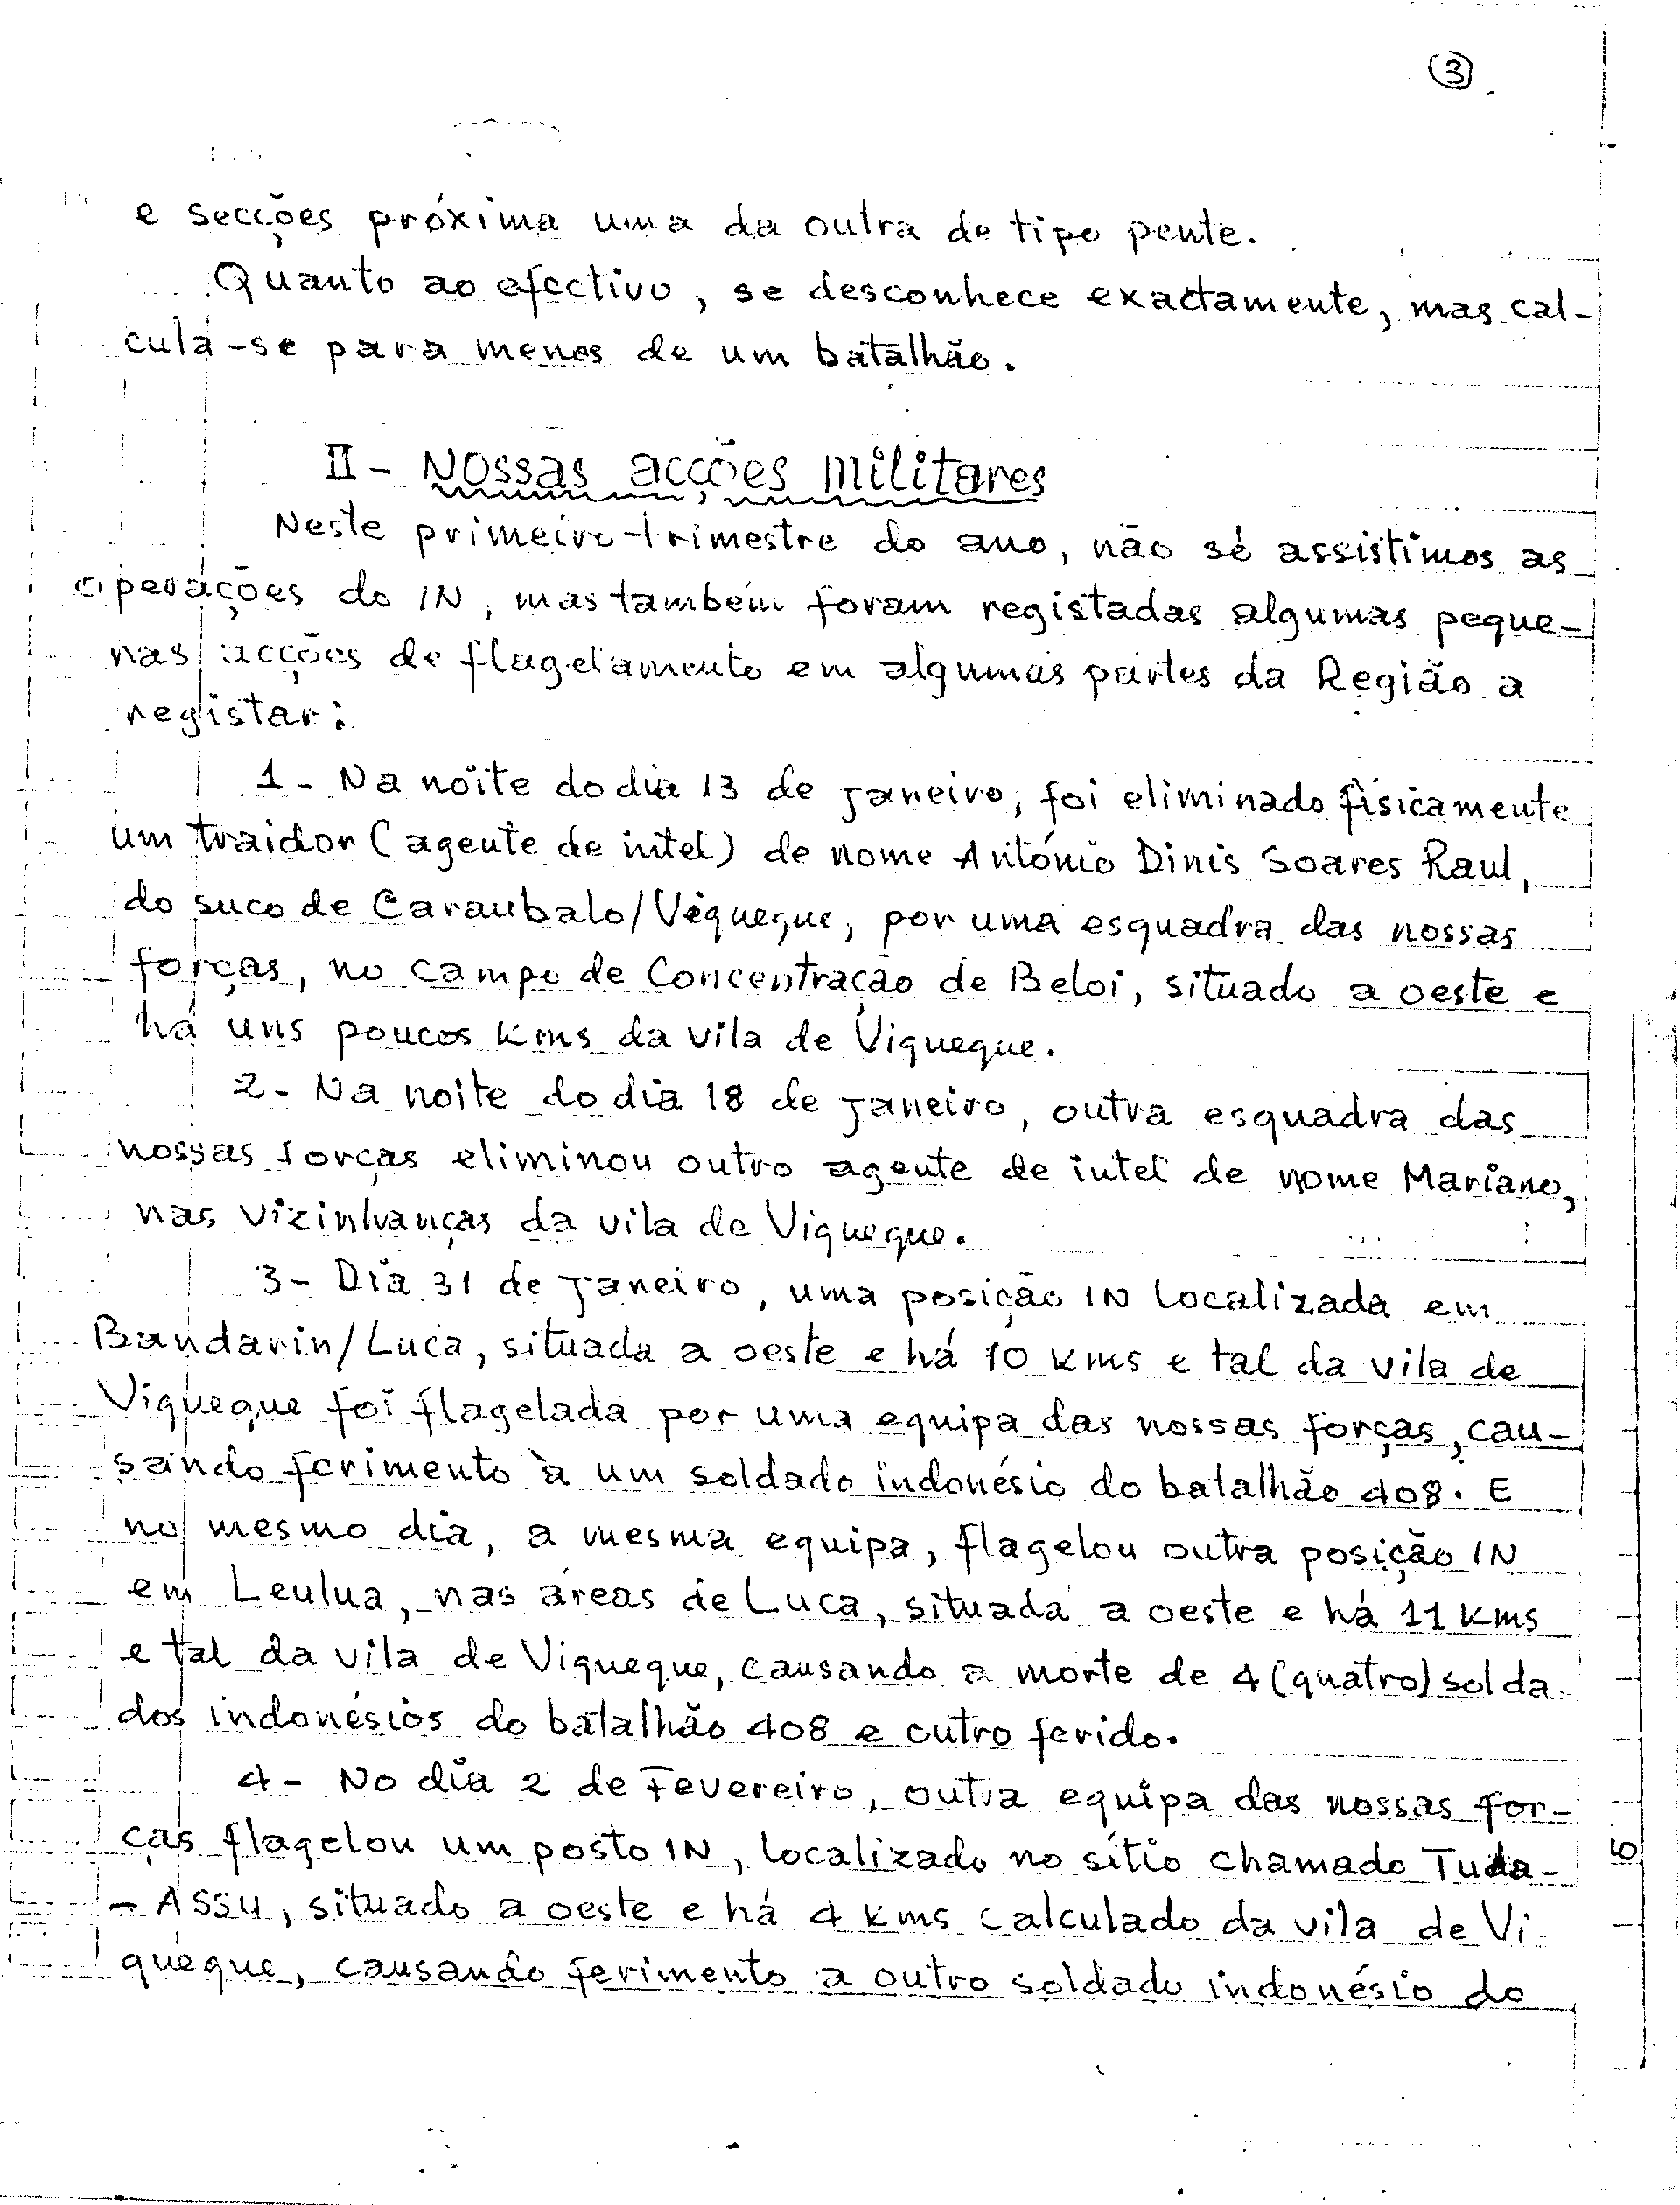 3
e secções próxima uma da outra de tipo pente.
Quanto ao efectivo, se desconhece exactamente, mas cal-
cula-se para menos de um batalhão.
II - Nossas acções militares
Neste primeiro trimestre do ano, não só assistimos as
operações do IN, mas também foram registadas algumas peque-
nas acções de flagelamento em algumas partes da Região a
registar:
1 - Na noite do dia 13 de Janeiro, foi eliminado fisicamente
um traidor (agente de intel) de nome António Dinis Soares Raul,
do suco de Caraubalo/Viqueque, por uma esquadra das nossas
forças, no campo de Concentração de Beloi, situado a oeste e
há uns poucos kms da vila de Viqueque.
2 - Na noite do dia 18 de Janeiro, outra esquadra das
nossas forças eliminou outro agente de intel de nome Mariano,
nas vizinhanças da vila de Viqueque.
3 - Dia 31 de Janeiro, uma posição IN localizada em
Bandarin/Luca, situada a oeste e há 10 kms e tal da vila de
Viqueque foi flagelada por uma equipa das nossas forças, cau-
sando ferimento à um soldado indonésio do batalhão 408. E
no mesmo dia, a mesma equipa, flagelou outra posição IN
em Leulua, nas áreas de Luca, situada a oeste e há 11 kms
e tal da vila de Viqueque, causando a morte de 4 (quatro) solda
dos indonésios do batalhão 408 e outro ferido.
4 - No dia 2 de Fevereiro, outra equipa das nossas for-
ças flagelou um posto IN, localizado no sítio chamado Tuda-
- Assu, situado a oeste e há 4 kms calculado da vila de Vi
queque, causando ferimento a outro soldado indonésio do